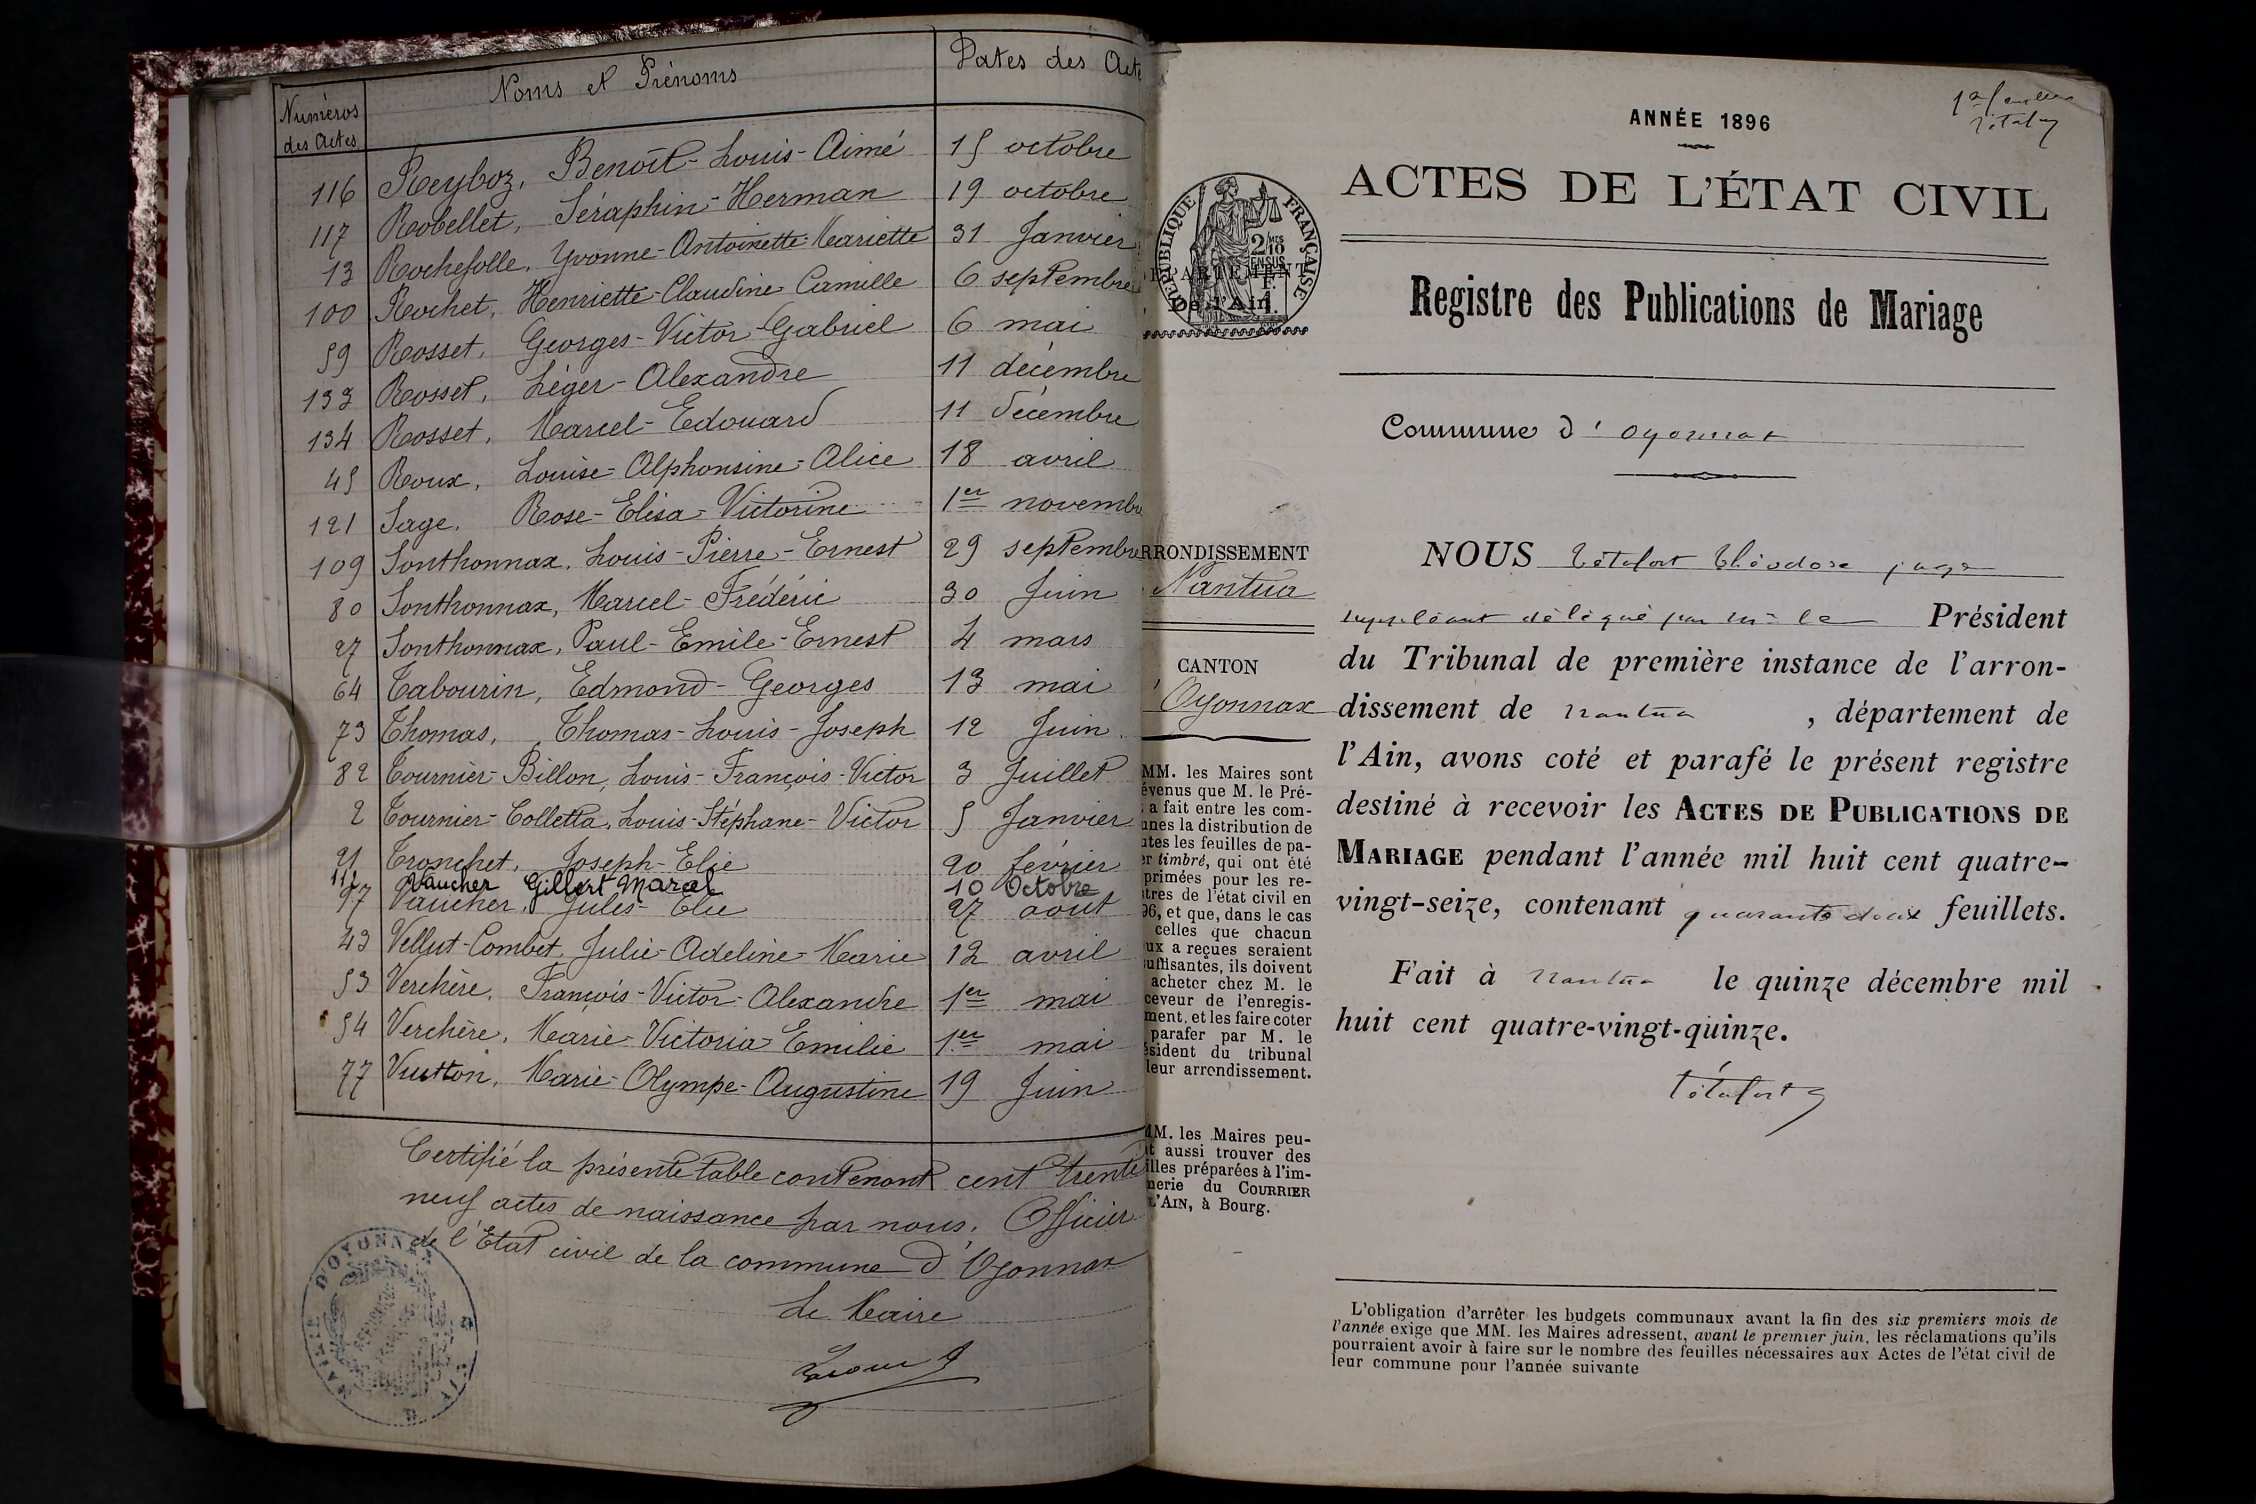 Numéros des Actes Noms et Prénoms Dates des Acte
116 Reyboz, Benoît-Louis-Aimé 15 octobre
117 Robellet, Séraphin-Herman 19 octobre
13 Rochefolle, Yvonne-Antoinette-Mariette 31 Janvier
100 Rochet, Henriette-Claudine-Camille 6 septembre
59 Rosset, Georges-Victor-Gabriel 6 mai
133 Rosset, Léger-Alexandre 11 décembre
134 Rosset, Marcel-Edouard 11 décembre
45 Roux, Louise-Alphonsine-Alice 18 avril
121 Sage, Rose-Elisa-Victorine 1er novembre
109 Sonthonnax, Louis-Pierre-Ernest 29 septembre
80 Sonthonnax, Marcel-Frédéric 30 Juin
27 Sonthonnax, Paul-Emile-Ernest 4 mars
64 Tabourin, Edmond-Georges 13 mai
73 Thomas, Thomas-Louis-Joseph 12 Juin
82 Tournier-Billon, Louis-François-Victor 3 Juillet
2 Tournier-Colletta, Louis-Stéphane-Victor 5 Janvier
21 Tronchet, Joseph-Elie 20 février
Vaucher Gilbert Marcel 10 Octobre
97 Vaucher, Jules-Elie 27 aout
43 Vellut-Combet, Julie-Adeline-Marie 12 avril
53 Verchère, François-Victor-Alexandre 1er mai
54 Verchère, Marie-Victoria-Emilie 1er mai
77 Vuitton, Marie-Olympe-Augustine 19 Juin
Certifié la présente table contenant cent trente
neuf actes de naissance par nous, Officier
de l'Etat civil de la commune d'Oyonnax
Le Maire
MAIRIE D'OYONNAX
RÉPUBLIQUE FRANÇAISE
2/10 EN SUS
DÉPARTEMENT
De l'Ain
RRONDISSEMENT
Nantua
CANTON
Oyonnax
MM. les Maires sont
évenus que M. le Pré-
a fait entre les com-
unes la distribution de
utes les feuilles de pa-
er timbré, qui ont été
primées pour les re-
stres de l'état civil en
96, et que, dans le cas
celles que chacun
ux a reçues seraient
suffisantes, ils doivent
acheter chez M. le
ceveur de l'enregis-
ment, et les faire coter
parafer par M. le
ésident du tribunal
leur arrondissement.
MM. les Maires peu-
nt aussi trouver des
illes préparées à l'im-
nerie du COURRIER
L'AIN, à Bourg.
ANNÉE 1896
ACTES DE L'ÉTAT CIVIL
Registre des Publications de Mariage
Commune d'Oyonnax
NOUS Tétafort Théodore juge
suppléant délégué par Mr le Président
du Tribunal de première instance de l'arron-
dissement de Nantua, département de
l'Ain, avons coté et parafé le présent registre
destiné à recevoir les ACTES DE PUBLICATIONS DE
MARIAGE pendant l'année mil huit cent quatre-
vingt-seize, contenant quarante deux feuillets.
Fait à Nantua le quinze décembre mil
huit cent quatre-vingt-quinze.
Tétafort
L'obligation d'arrêter les budgets communaux avant la fin des six premiers mois de
l'année exige que MM. les Maires adressent, avant le premier juin, les réclamations qu'ils
pourraient avoir à faire sur le nombre des feuilles nécessaires aux Actes de l'état civil de
leur commune pour l'année suivante